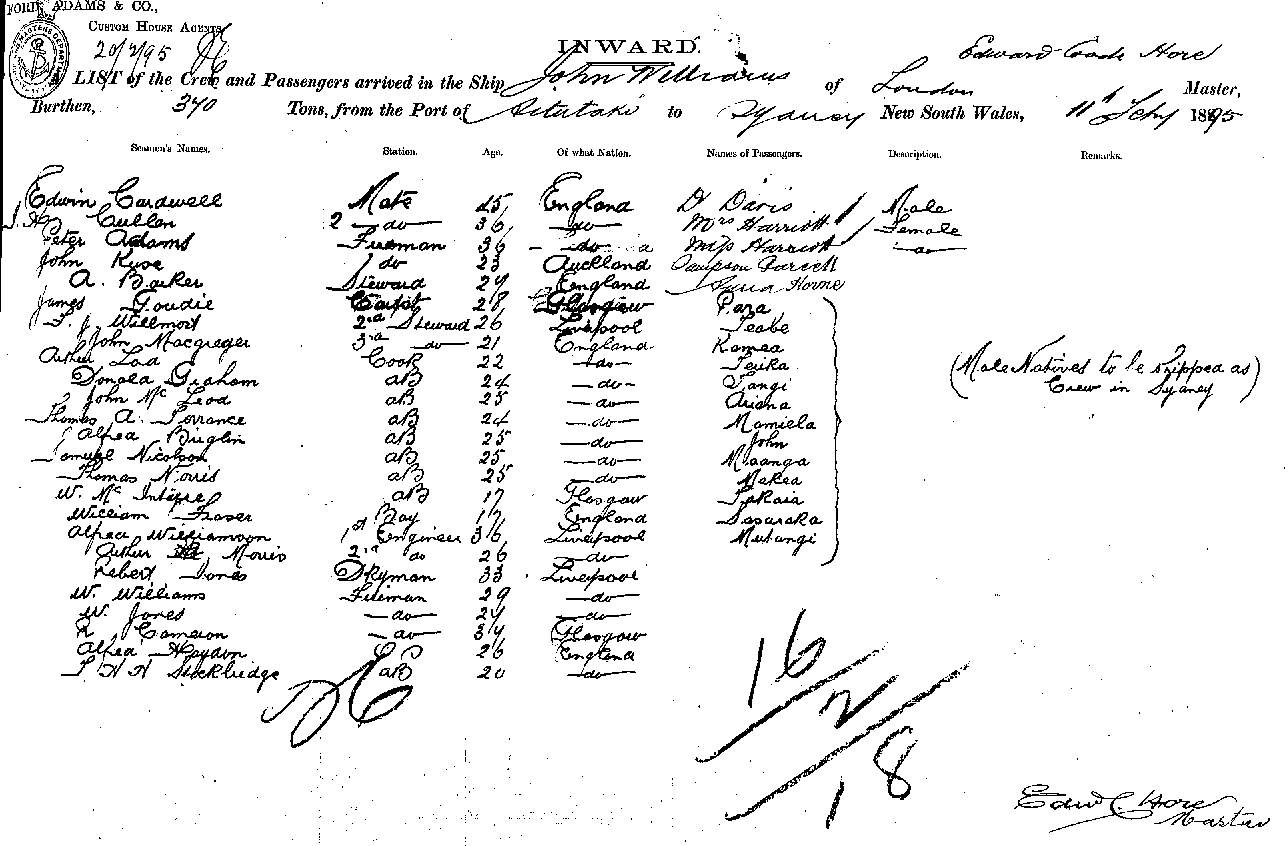 FORD, ADAMS & CO.,
CUSTOM HOUSE AGENTS
20/2/95
INWARD.
Edward Coode Hore
A LIST of the Crew and Passengers arrived in the Ship John Williams of London Master,
Burthen, 340 Tons, from the Port of Aitutaki to Sydney New South Wales, 11th Feby 1895
Seamen's Names. Station. Age. Of what Nation. Names of Passengers. Description. Remarks.
Edwin Cardwell Mate 45 England D Davis Male
Cullen 2 do 36 do Mrs Harriott Female
Peter Adams Fireman 36 do Miss Harriott do
John Ruse do 23 Auckland
A. Barker Steward 29 England Horne
James Goudie 28 Glasgow Para
T. J. Willmott 2nd Steward 26 Liverpool Teabe
John Macgregor 3rd do 21 England Romea
Arthur Lad Cook 22 do Teuka
Donald Graham aB 24 do Tangi
John McLeod aB 25 do Ariana
Thomas A. Torrance aB 24 do Mamiela
Alfred Buglin aB 25 do John
Samuel Nicolson aB 25 do Maanga
Thomas Norris aB 25 do Makea
W. McIntyre aB 17 Glasgow Takaia
William Fraser Boy 17 England Sasaraka
Alfred Williamson 1st Engineer 36 Liverpool Mutangi
Arthur Morris 2nd do 26 do
Robert Jones Dkyman 33 Liverpool
W. Williams Fireman 29 do
W. Jones do 24 do
R Cameron do 34 Glasgow
Alfred Haydon 26 England
T H H Stockbridge aB 20 do
(Male Natives to be shipped as
Crew in Sydney)
16
2
18
Edwd C. Hore
Master